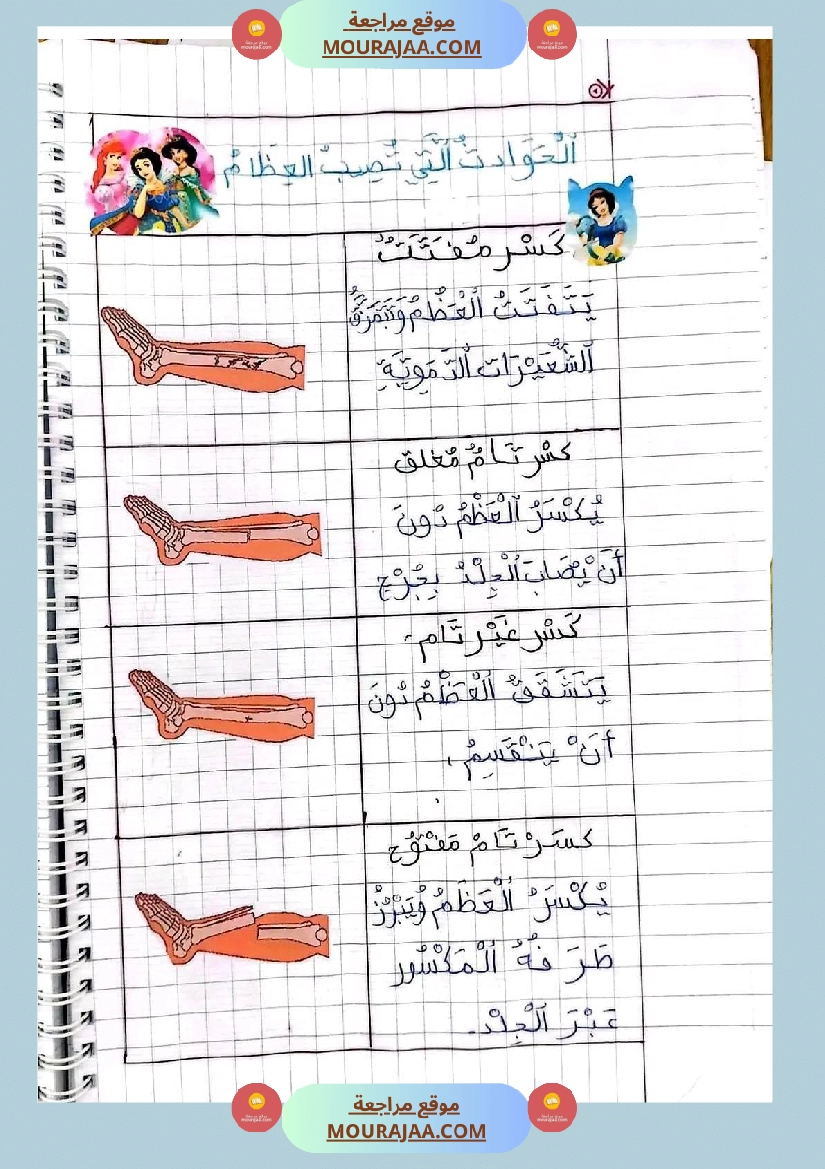 موقع مراجعة
MOURAJAA.COM
اَلْحَوَادثُ اَلَّتِي تُصِيبُ العِظَامُ
كَسْر مُفَتَّتُ
يَتَفَتَتُ اَلْعَظْمُ وَتَتَمَزَقُ
اَلشُّعَيْرَات اَلدَّمَوِيَّةِ
كسْر تَامُ مُغلق
يُكْسَرُ اَلْعَظْمُ دُونَ
أَنْ يُصَابَ اَلْجِلْدُ بِجُرْحٍ
كَسْر غَيْر تَام.
يَتَشَقَقُ اَلْعَظْمُ دُونَ
أَنْ يَنْقَسِمُ.
كسَرْ تَامْ مَفْتُوُح
يُكْسَرُ اَلْعَظَمُ وُيَبْرُزُ
طَرَفُهُ اَلْمَكْسُور
عَبْرَ اَلْجِلْد.
موقع مراجعة
MOURAJAA.COM